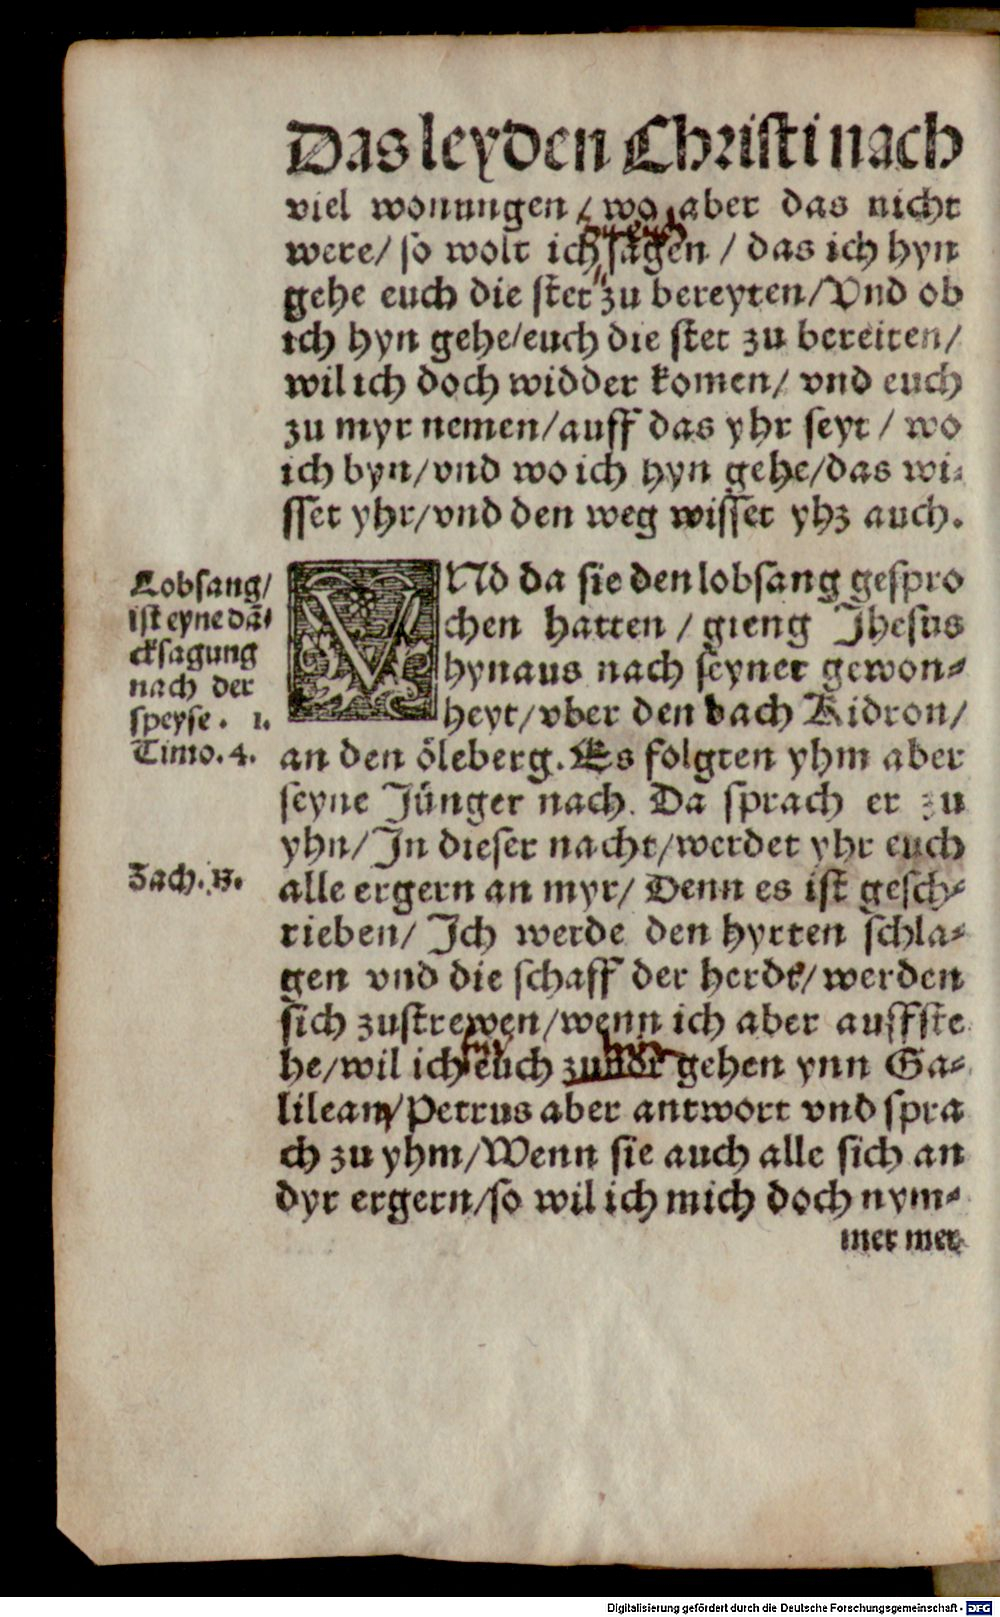 Das leyden Christi nach
viel wonungen / wo aber das nicht
were/ so wolt ich sagen / das ich hyn
gehe euch die stet zu bereyten/Vnd ob
ich hyn gehe/euch die stet zu bereiten/
wil ich doch widder komen/ vnd euch
zu myr nemen/auff das yhr seyt / wo
ich byn/vnd wo ich hyn gehe/das wi-
sset yhr/vnd den weg wisset yhr auch.
Lobsang/
ist eyne dā-
cksagung
nach der
speyse. 1.
Timo. 4.
VNd da sie den lobsang gespro
chen hatten / gieng Jhesus
hynaus nach seyner gewon-
heyt/vber den bach Kidron/
an den öleberg. Es folgten yhm aber
seyne Jünger nach. Da sprach er zu
yhn/Jn dieser nacht/werdet yhr euch
Zach. 13.
alle ergern an myr/ Denn es ist gesch-
rieben/ Jch werde den hyrten schla-
gen vnd die schaff der herde/werden
sich zustrewen/wenn ich aber auffste
he/wil ich euch zuuor gehen ynn Ga-
lilean/Petrus aber antwort vnd spra
ch zu yhm/Wenn sie auch alle sich an
dyr ergern/so wil ich mich doch nym-
mer mer
Digitalisierung gefördert durch die Deutsche Forschungsgemeinschaft - DFG